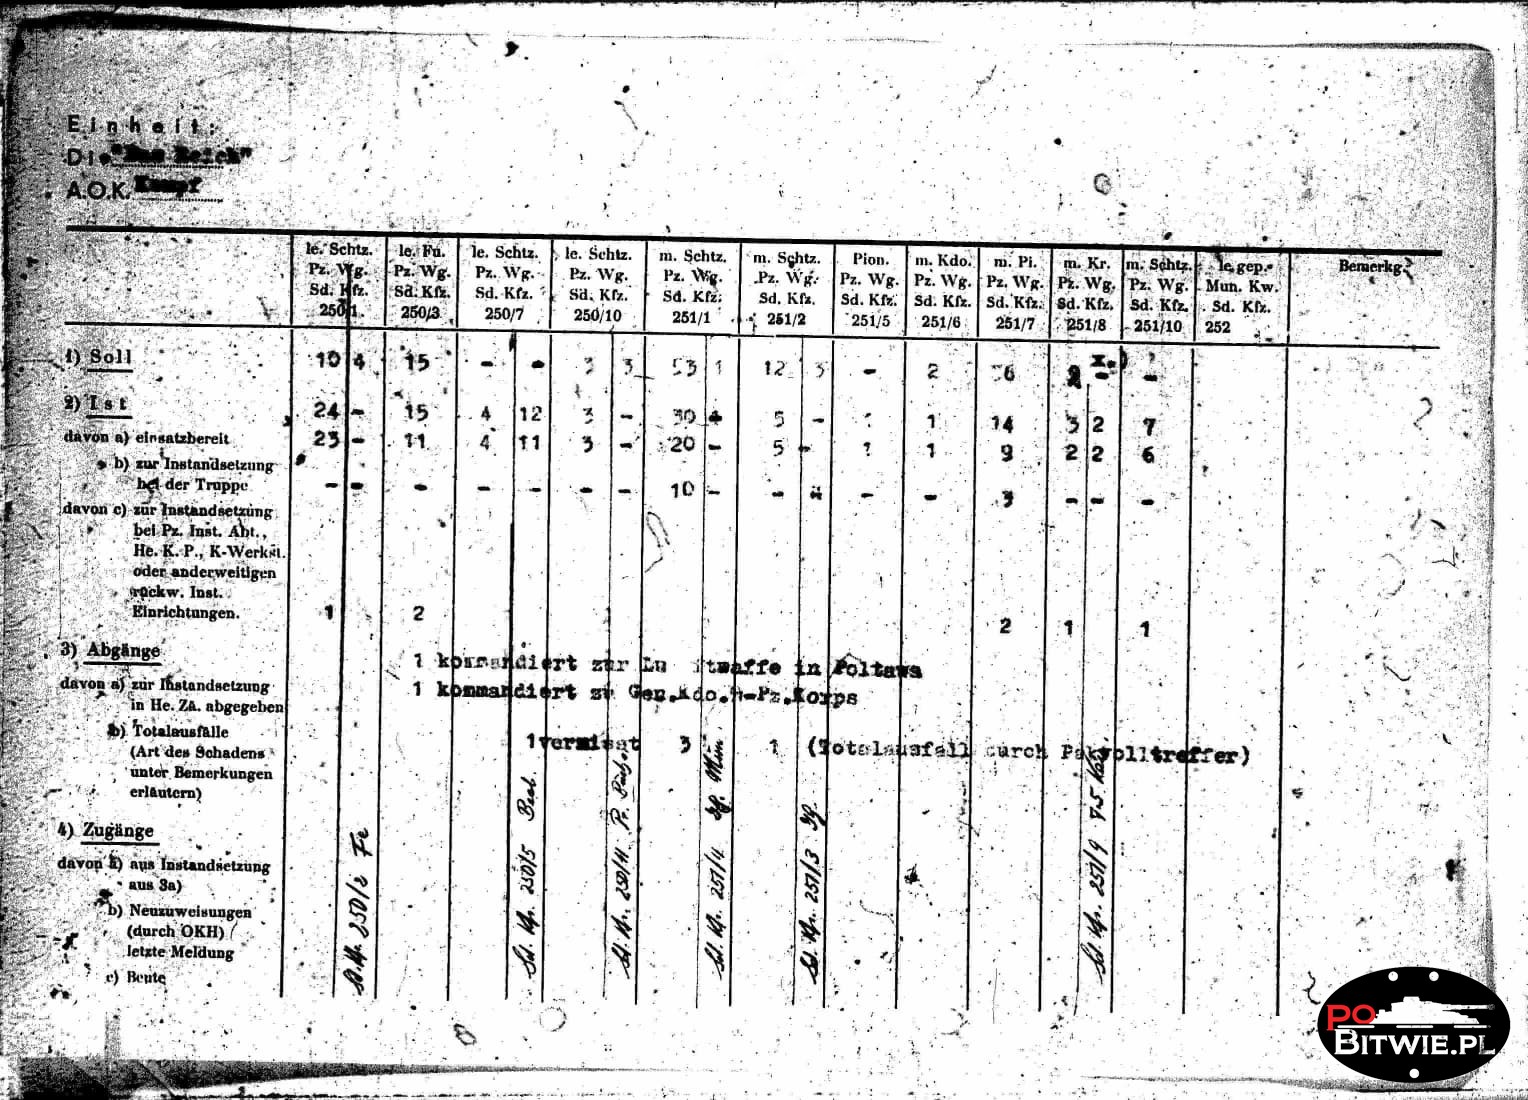 Einheit:
Di. "Das Reich"
A.O.K. Kempf
le. Schtz. Pz. Wg. Sd. Kfz. 250/1
le. Fu. Pz. Wg. Sd. Kfz. 250/3
le. Schtz. Pz. Wg. Sd. Kfz. 250/7
le. Schtz. Pz. Wg. Sd. Kfz. 250/10
m. Schtz. Pz. Wg. Sd. Kfz. 251/1
m. Schtz. Pz. Wg. Sd. Kfz. 251/2
Pion. Pz. Wg. Sd. Kfz. 251/5
m. Kdo. Pz. Wg. Sd. Kfz. 251/6
m. Pi. Pz. Wg. Sd. Kfz. 251/7
m. Kr. Pz. Wg. Sd. Kfz. 251/8
m. Schtz. Pz. Wg. Sd. Kfz. 251/10
le. gep. Mun. Kw. Sd. Kfz. 252
Bemerkg.
1) Soll 10 4 15 - - 3 3 53 1 12 3 - 2 - -
2) Ist 24 - 15 4 12 3 - 30 5 - 1 14 3 2 7
davon a) einsatzbereit 23 - 11 4 11 3 - 20 - 5 - 1 9 2 2 6
b) zur Instandsetzung
bei der Truppe - - - - - - - 10 - - - - 3 - - -
davon c) zur Instandsetzung
bei Pz. Inst. Abt.,
He. K. P., K-Werkst.
oder anderweitigen
rückw. Inst.
Einrichtungen. 1 2 2 1 1
3) Abgänge 1 kommandiert zur Luftwaffe in Poltawa
davon a) zur Instandsetzung 1 kommandiert zu Gen.Kdo. Pz.Korps
in He. Za. abgegeben
b) Totalausfälle 1 vermisst 3 1 (Totalausfall durch Pakvolltreffer)
(Art des Schadens
unter Bemerkungen
erläutern)
4) Zugänge
davon a) aus Instandsetzung
aus 3a)
b) Neuzuweisungen
(durch OKH)
letzte Meldung
c) Beute
250/2 Fe
Sd. Kfz. 250/5 Beob
Sd. Kfz. 250/11
Sd. Kfz. 251/4
Sd. Kfz. 251/3
Sd. Kfz. 251/9 7.5
PO
BITWIE.PL